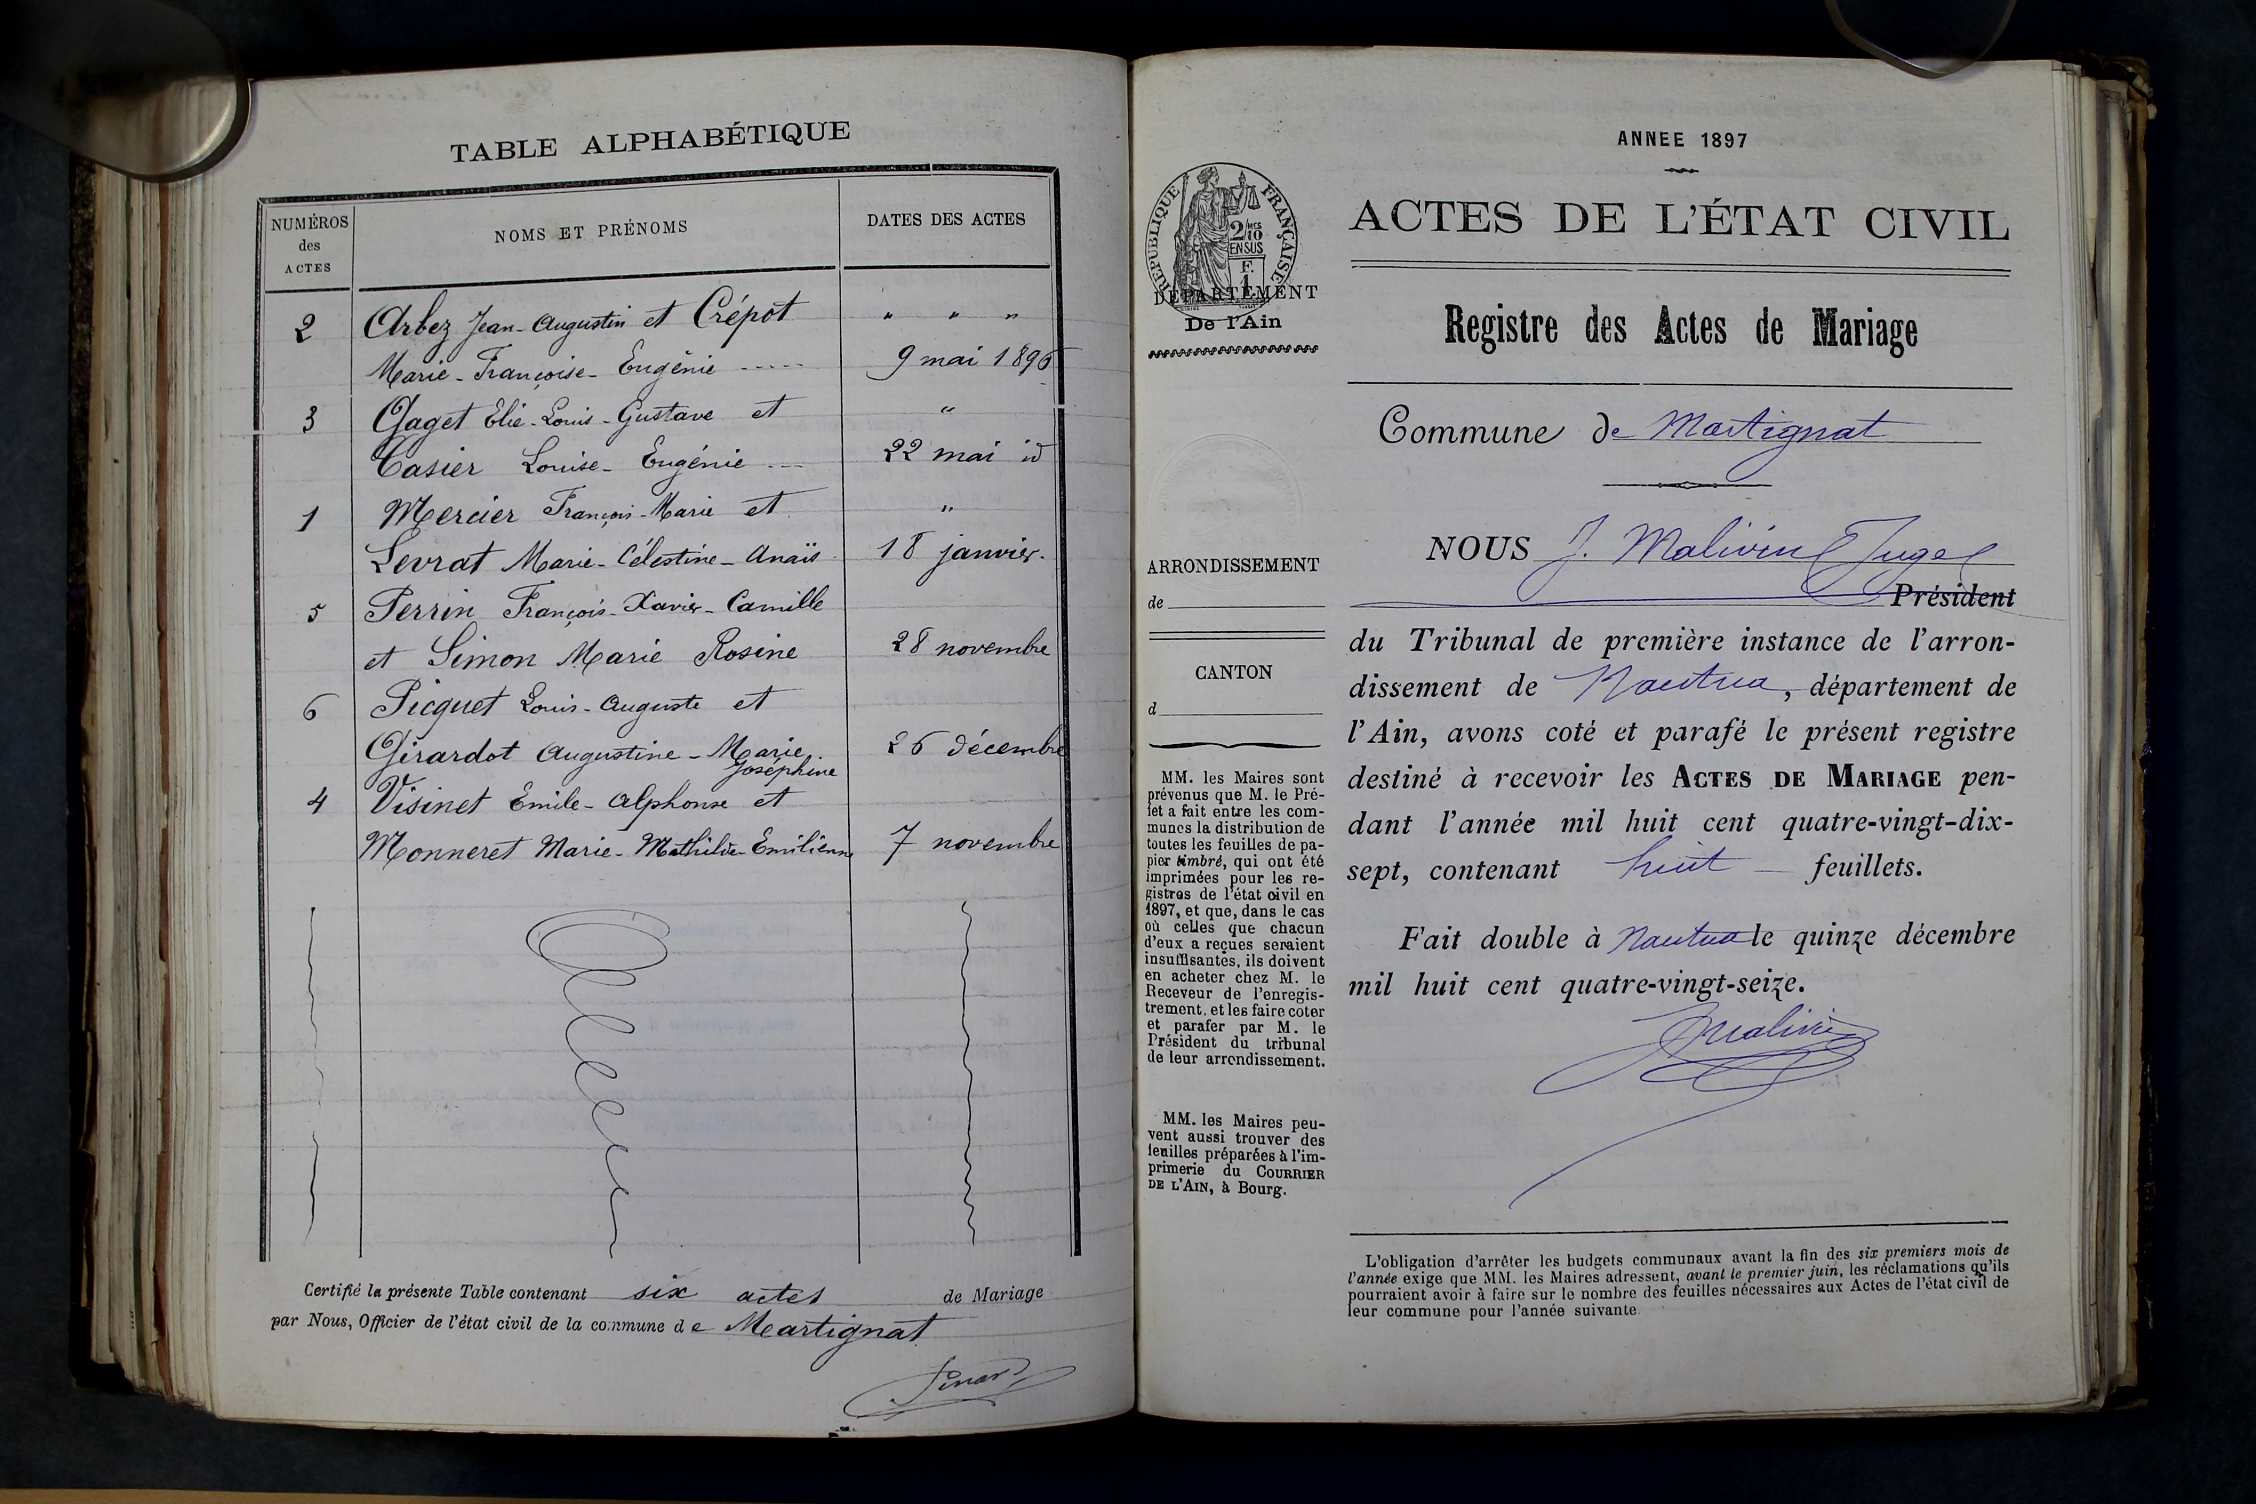 TABLE ALPHABÉTIQUE
NUMÉROS
des
ACTES
NOMS ET PRÉNOMS
DATES DES ACTES
2 Arbez Jean-Augustin et Crépot " " "
Marie-Françoise-Eugénie ----- 9 mai 1896
3 Gaget Elie-Louis-Gustave et "
Casier Louise-Eugénie --- 22 mai id
1 Mercier François-Marie et "
Levrat Marie-Célestine-Anaïs 18 janvier.
5 Perrin François-Xavier-Camille
et Simon Marie Rosine 28 novembre
6 Picquet Louis-Auguste et
Girardot Augustine-Marie 26 décembre
Joséphine
4 Visinet Emile-Alphonse et
Monneret Marie-Mathilde-Emilienne 7 novembre
Certifié la présente Table contenant six actes de Mariage
par Nous, Officier de l'état civil de la commune de Martignat
ANNEE 1897
RÉPUBLIQUE FRANÇAISE
2/10MES
EN SUS
F.
1
DÉPARTEMENT
De l'Ain
ARRONDISSEMENT
de
CANTON
d
MM. les Maires sont
prévenus que M. le Pré-
fet a fait entre les com-
munes la distribution de
toutes les feuilles de pa-
pier timbré, qui ont été
imprimées pour les re-
gistres de l'état civil en
1897, et que, dans le cas
où celles que chacun
d'eux a reçues seraient
insuffisantes, ils doivent
en acheter chez M. le
Receveur de l'enregis-
trement, et les faire coter
et parafer par M. le
Président du tribunal
de leur arrondissement.
MM. les Maires peu-
vent aussi trouver des
feuilles préparées à l'im-
primerie du COURRIER
DE L'AIN, à Bourg.
ACTES DE L'ÉTAT CIVIL
Registre des Actes de Mariage
Commune de Martignat
NOUS J. Malivin Juge
Président
du Tribunal de première instance de l'arron-
dissement de Nantua, département de
l'Ain, avons coté et parafé le présent registre
destiné à recevoir les ACTES DE MARIAGE pen-
dant l'année mil huit cent quatre-vingt-dix-
sept, contenant huit feuillets.
Fait double à Nantua le quinze décembre
mil huit cent quatre-vingt-seize.
JMalivin
L'obligation d'arrêter les budgets communaux avant la fin des six premiers mois de
l'année exige que MM. les Maires adressent, avant le premier juin, les réclamations qu'ils
pourraient avoir à faire sur le nombre des feuilles nécessaires aux Actes de l'état civil de
leur commune pour l'année suivante.